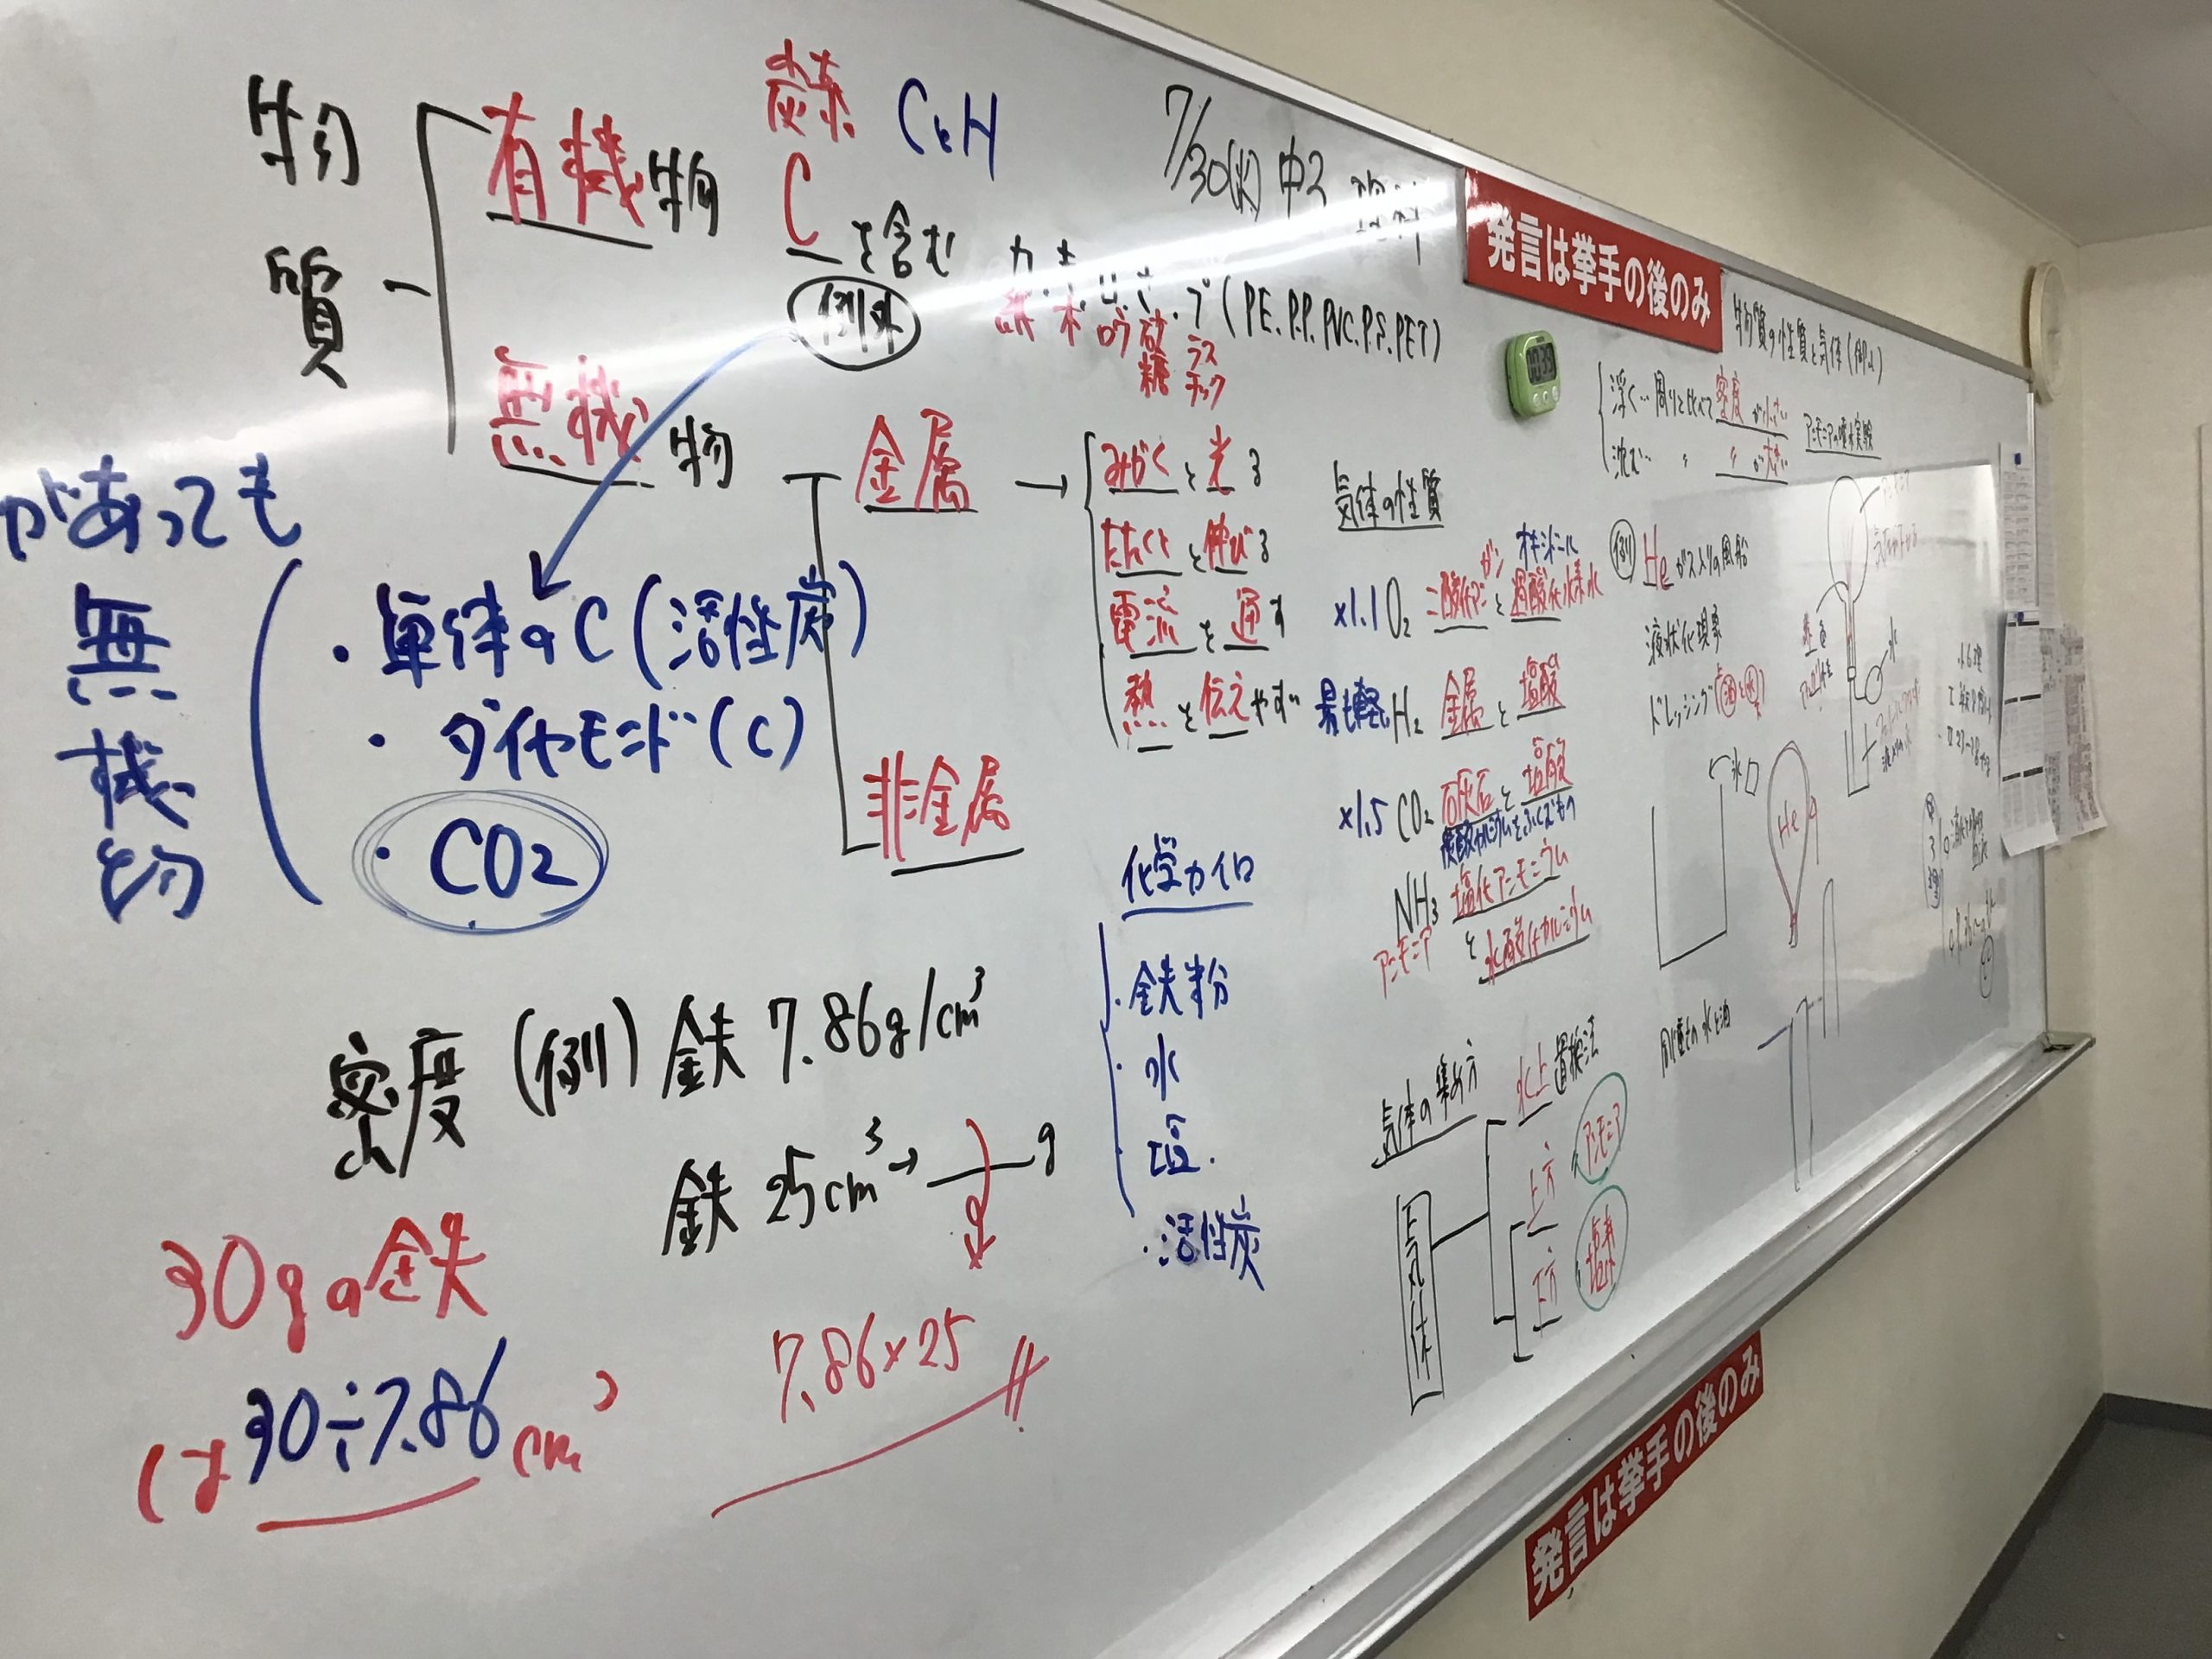 物質
有機物
炭素 CとH
Cを含む
例外
(PE.P.P.PVC.P.S.PET)
紙 木 ロウ 砂糖 プラスチック
7/30(火) 中3 理科
無機物
金属
みがくと光る
たたくと伸びる
電流を通す
熱を伝えやすい
非金属
があっても
無機物
・単体のC(活性炭)
・ダイヤモンド(C)
・CO2
密度 (例) 鉄 7.86g/cm³
鉄 25cm³→ g
7.86×25
30gの鉄
は30÷7.86cm³
化学カイロ
・鉄粉
・水
・塩
・活性炭
気体の性質
オキシドール
×1.1 O2 二酸化マンガンと過酸化水素水
最も軽い H2 金属と塩酸
×1.5 CO2 石灰石と塩酸
炭酸カルシウムをふくむもの
NH3 塩化アンモニウム
アンモニア と水酸化カルシウム
気体の集め方
気体
水上置換法
上方 アンモニア
下方 塩素
発言は挙手の後のみ
物質の性質と気体
浮く…周りと比べて密度が小さい
沈む… 〃 〃が大きい
アンモニアの噴水実験
(例) Heガス入りの風船
液状化現象
ドレッシング(油と水)
氷
He
水
発言は挙手の後のみ